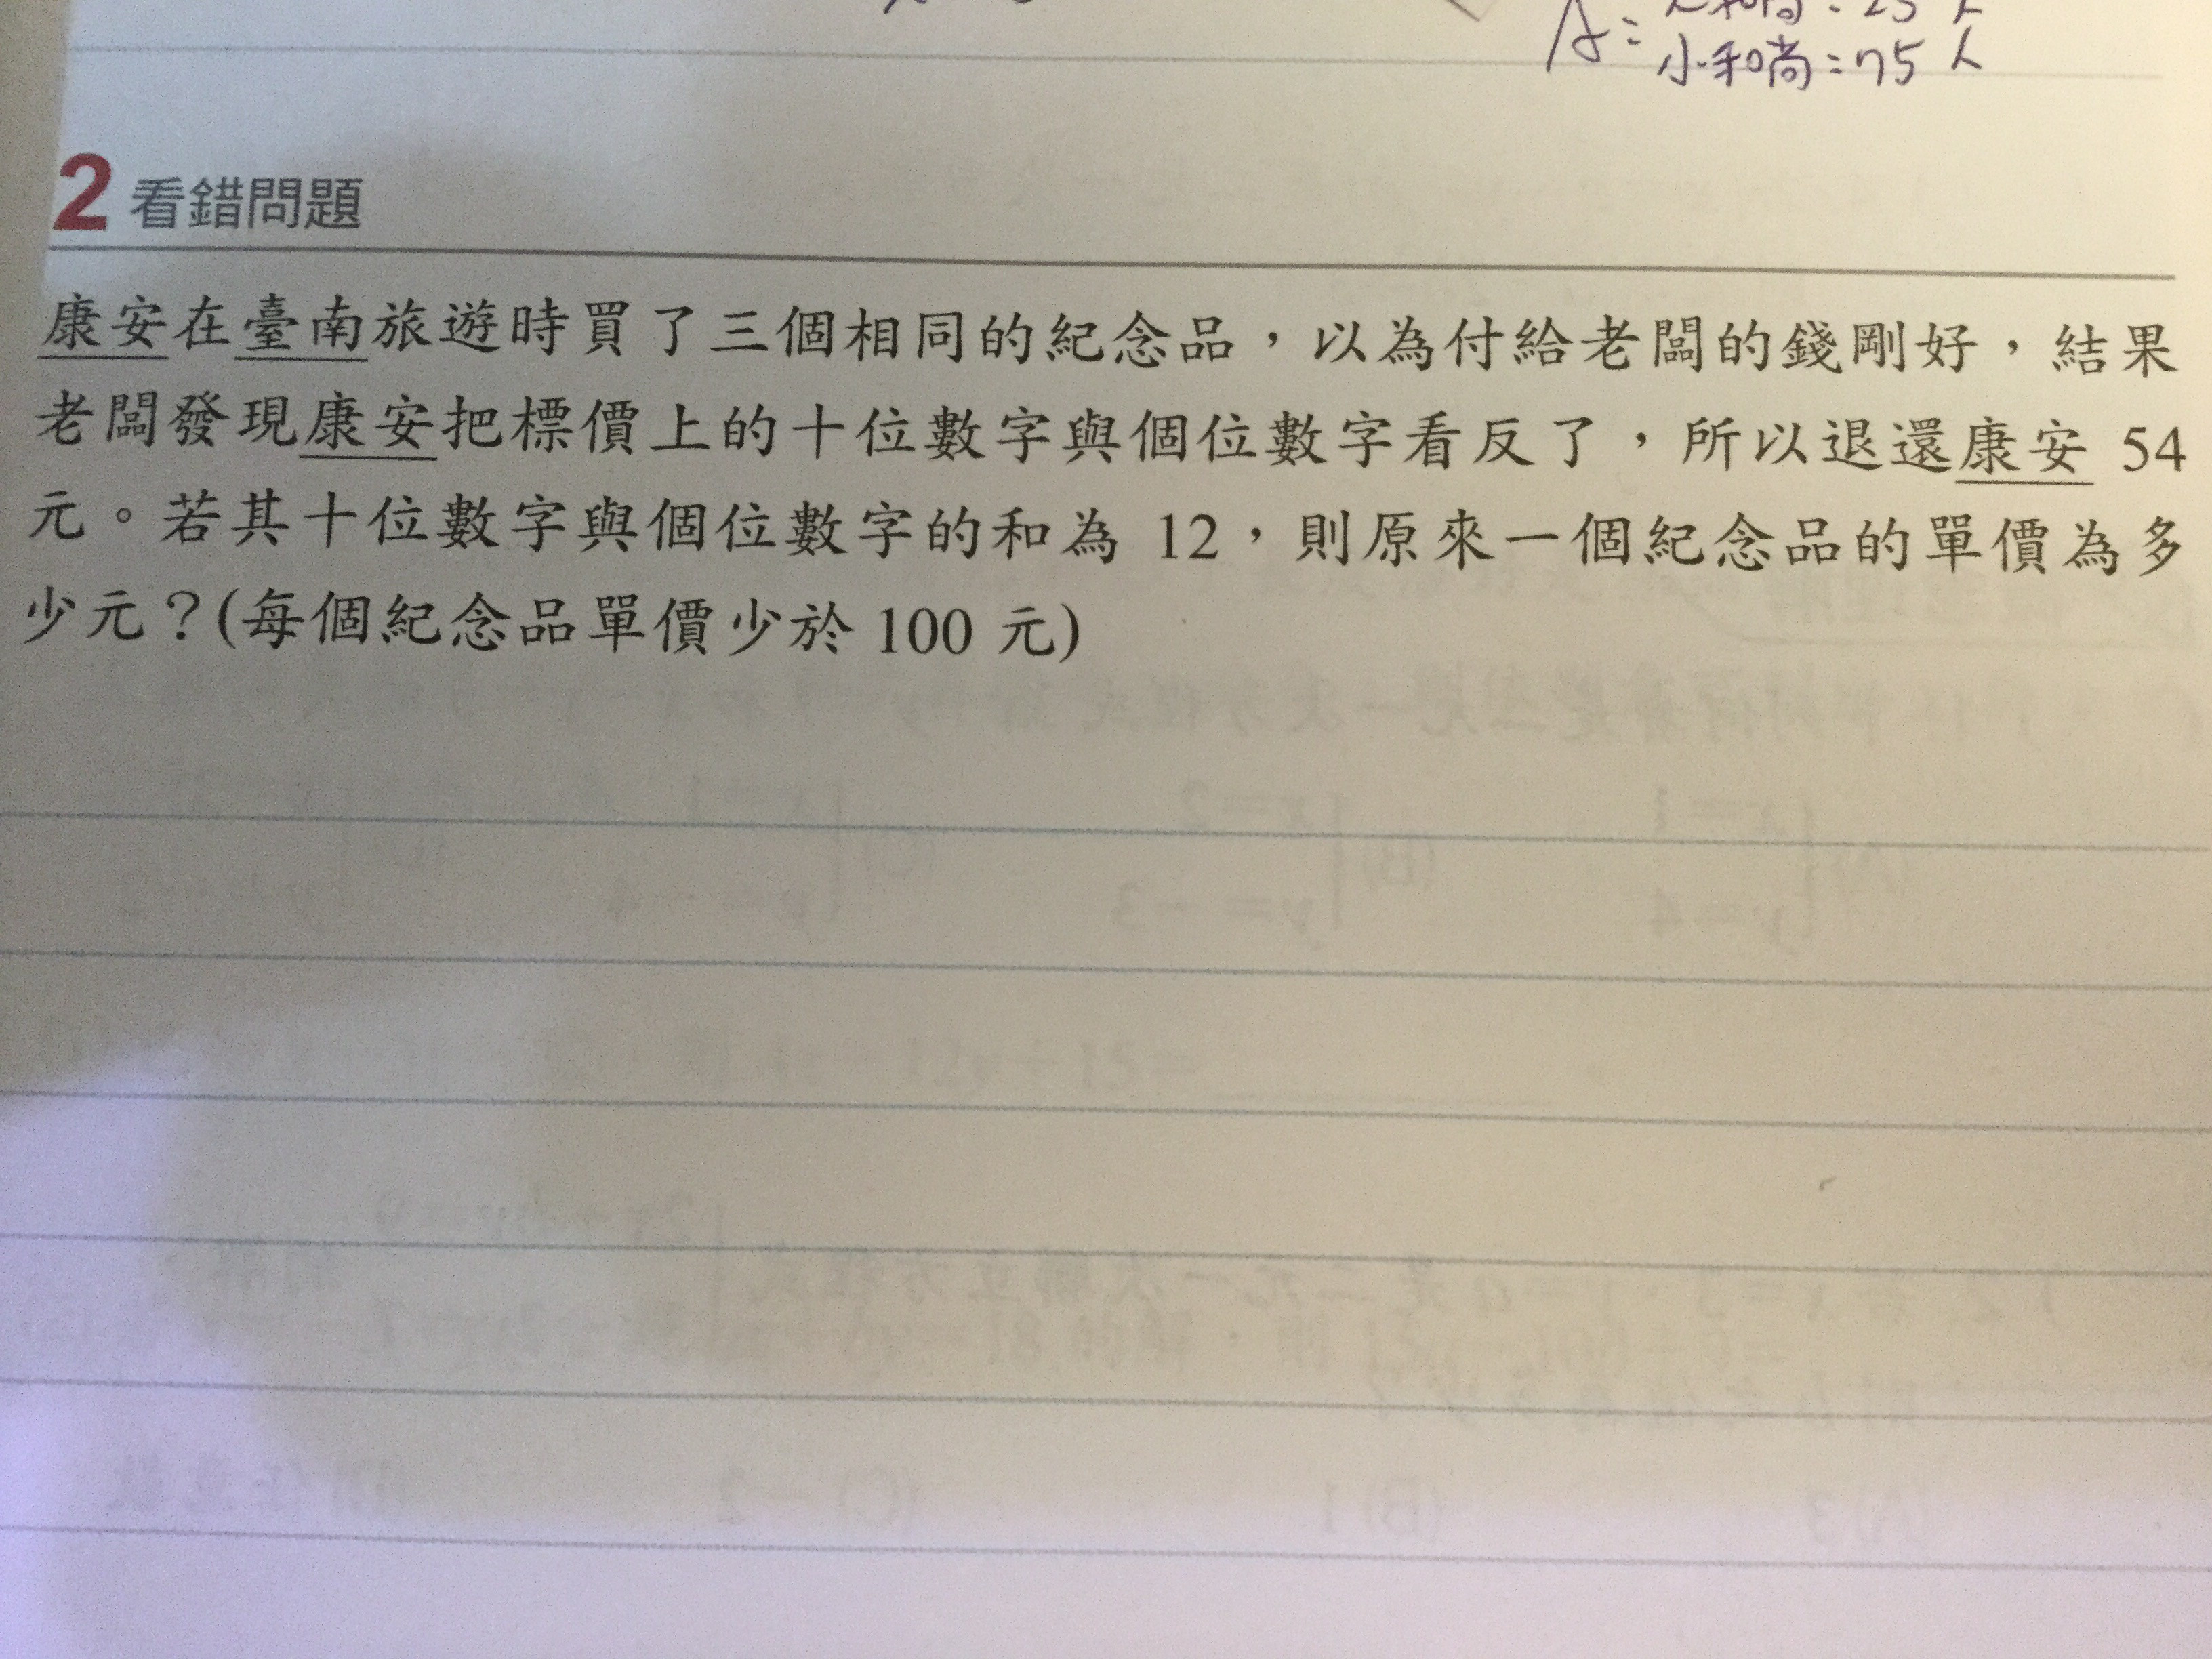 A：大和尚：25人
小和尚：75人
2 看錯問題
康安在臺南旅遊時買了三個相同的紀念品，以為付給老闆的錢剛好，結果
老闆發現康安把標價上的十位數字與個位數字看反了，所以退還康安 54
元。若其十位數字與個位數字的和為 12，則原來一個紀念品的單價為多
少元？(每個紀念品單價少於 100 元)